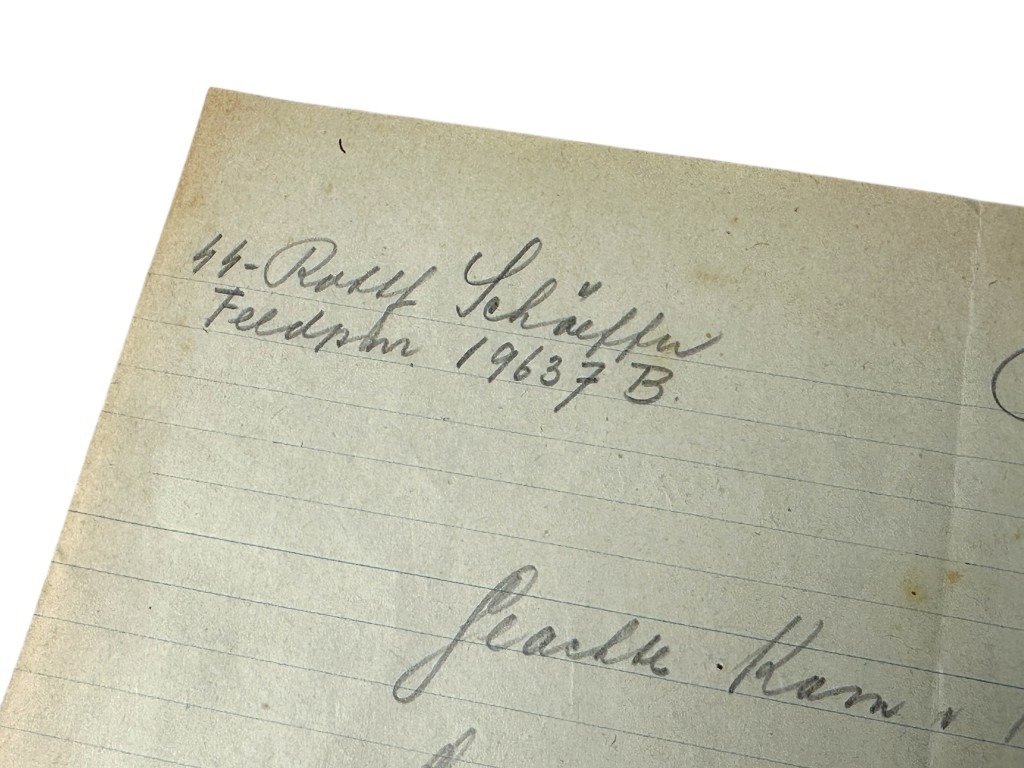 SS-Rottf Schäeffer
Feldpnr. 19637 B.
Geachte Kam